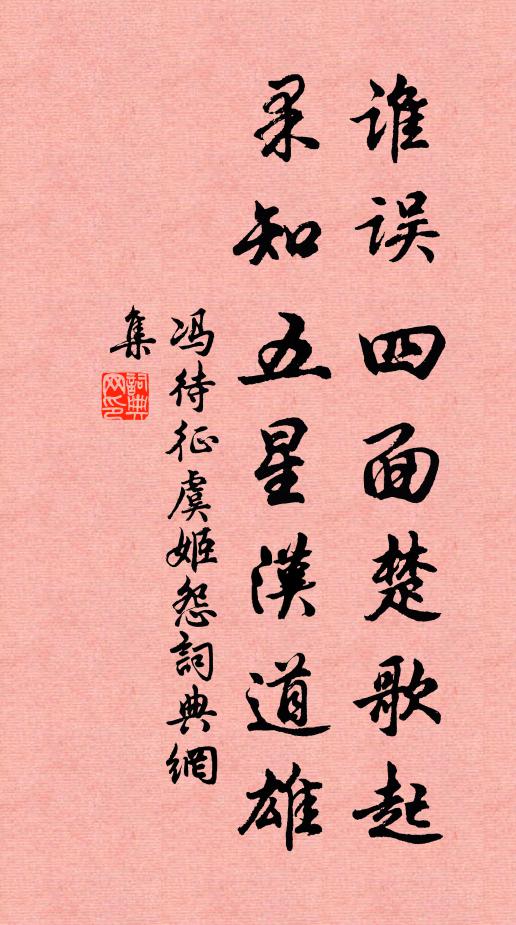 谁误四面楚歌起
果知五星漢道雄
冯待征虞姬怨詞典網
集
詞典
网印